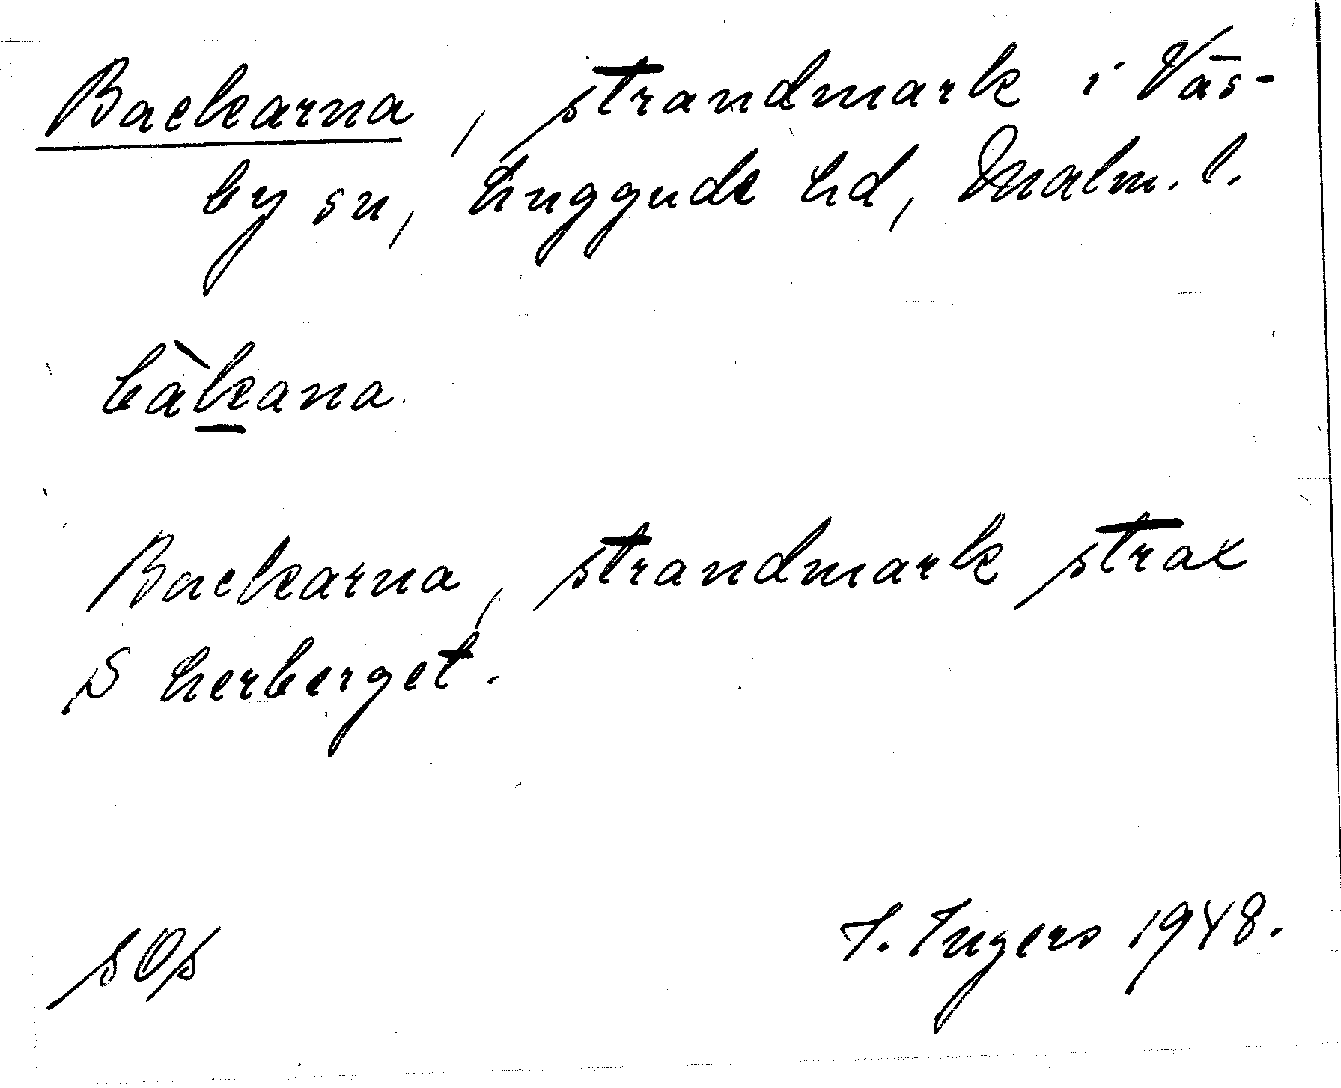 Backarna, strandmark i Väs-
by sn, Luggude hd, Malm. l.
bàkana
Backarna, strandmark strax
S herberget.
SOS I. Ingers 1948.